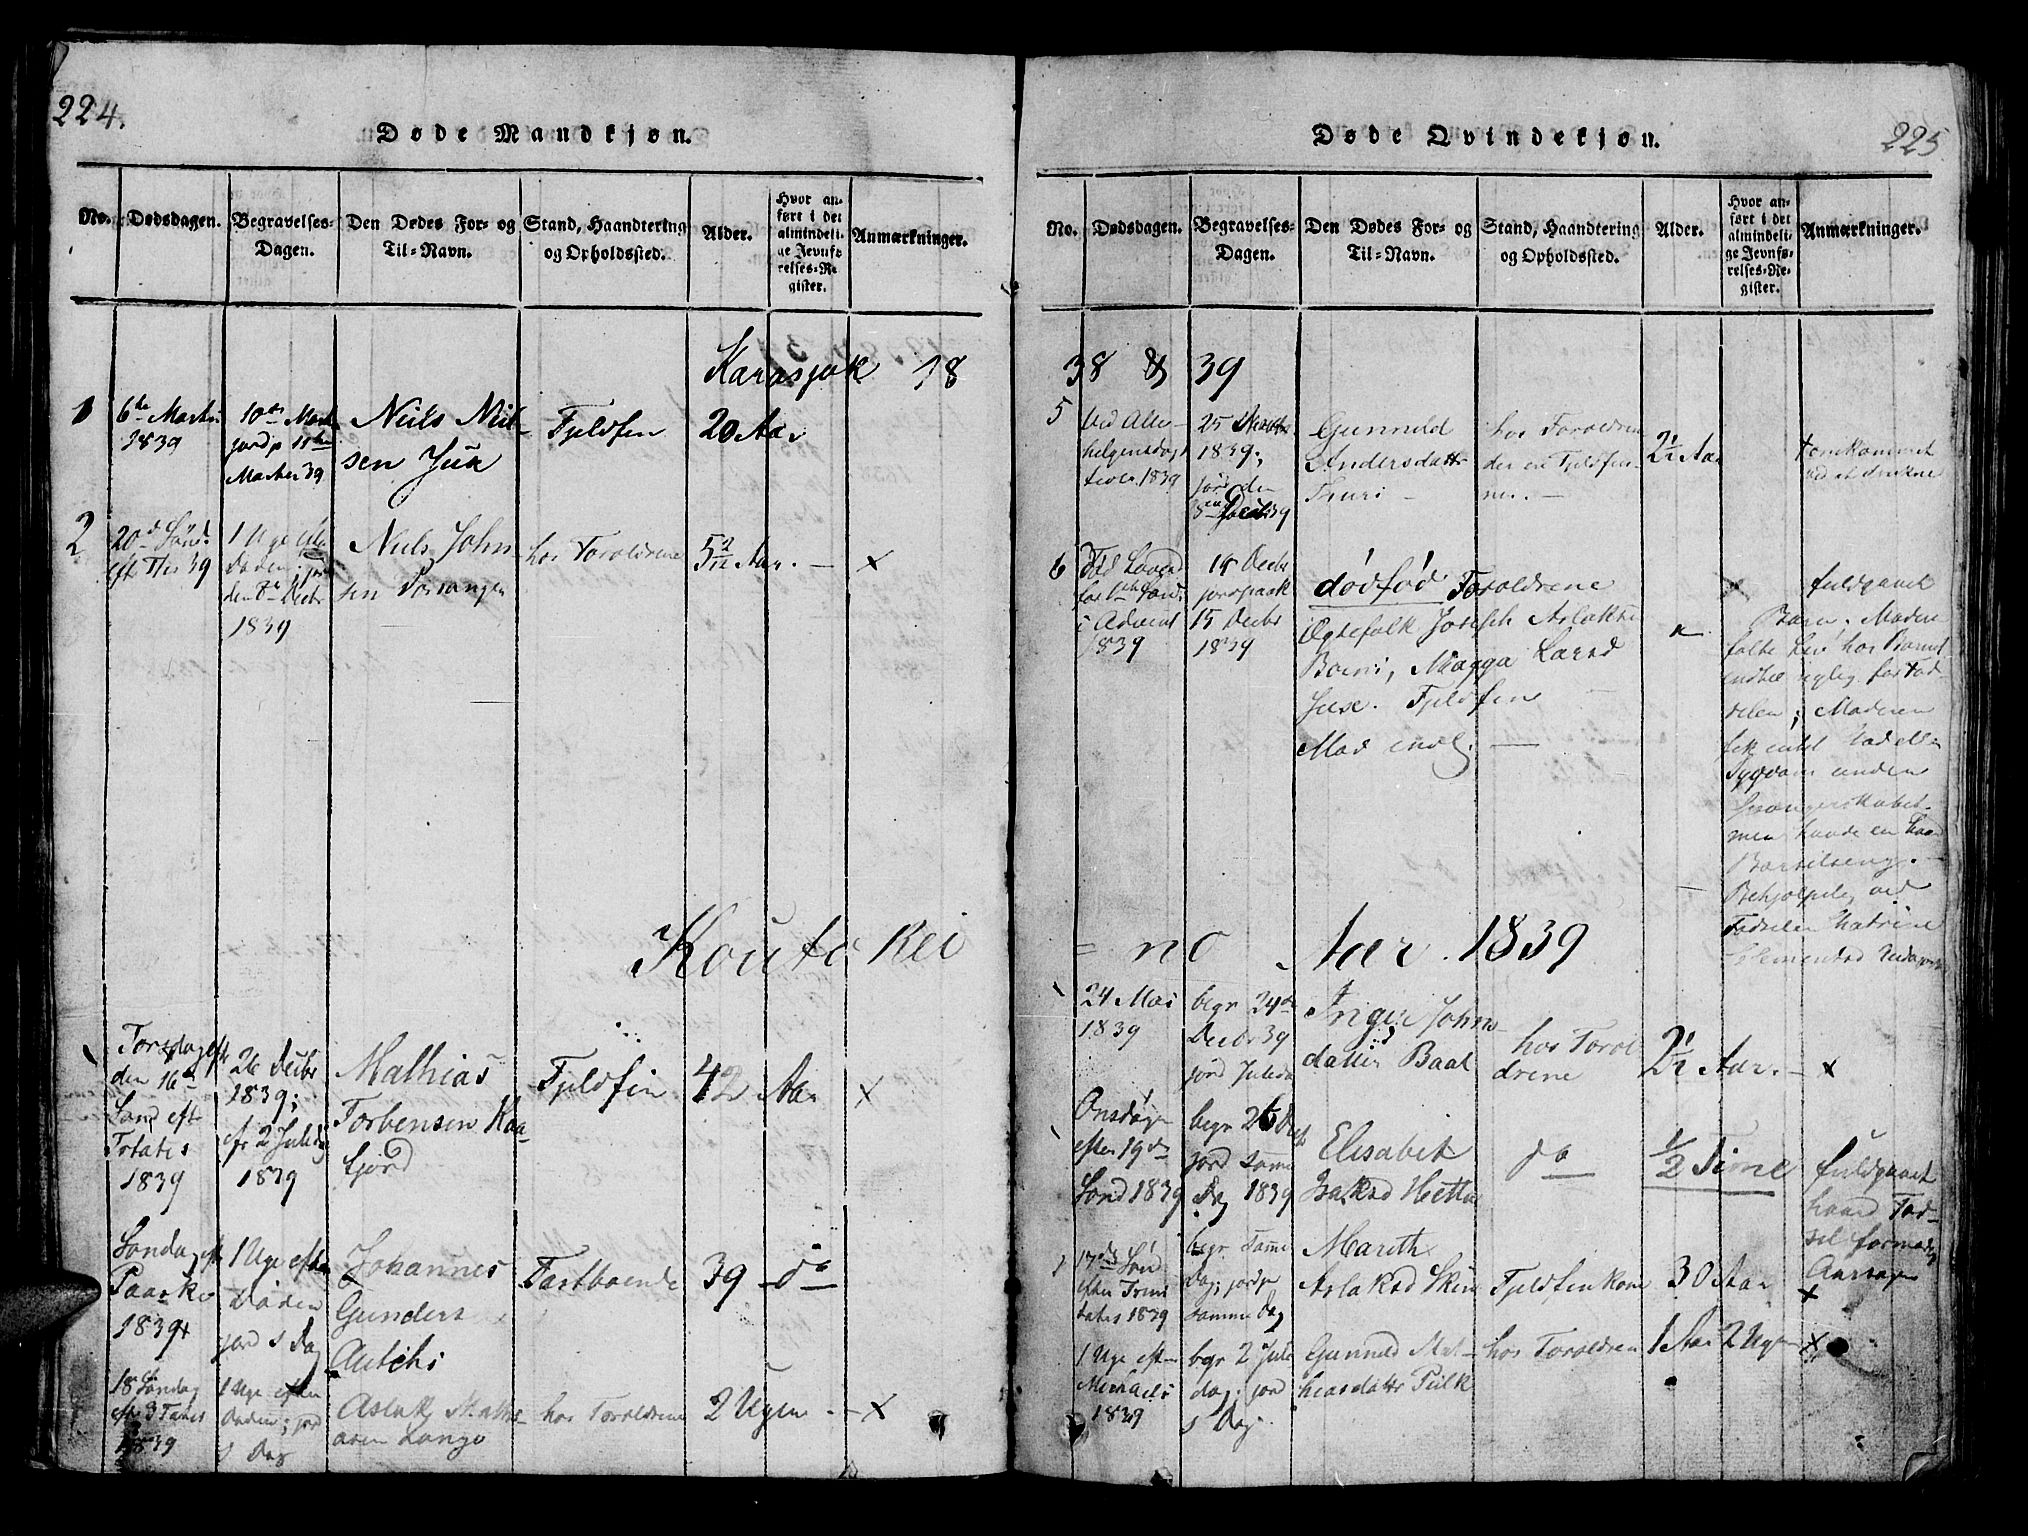 224.
Døde Mandkjøn.
No.
Dødsdagen.
Begravelses-
Dagen.
Den Dødes For- og
Til-Navn.
Stand, Haandtering
og Opholdssted.
Alder.
Hvor an-
ført i det
almindeli-
ge Jevnfø-
relses-Re-
gister.
Anmærkninger.
Karasjok 18
1
6te Martz
1839
10de Marti
jordp 11te
Marter 39
Niels Niel-
sen Juu
Fjeldfin
20 Aar
2
20d Sönd.
eft Tr 39
1 Uge efter
Døden; jor
den 8de Decbr
1839
Niels John
sen Porsanger
hos Foroldrene
5 2/12 Aar. — x
Kouto kei
Torsdag eft
den 16d
Sönd eft
Trtatis
1839
26 Decbr
1839;
2 Juledag
1839
Mathias
Torbensen Kaa-
fjord
Fjeldfin
42 Aar
x
Søndag eft
Paaske
1839
1 Uge efter
Døden
jord s Dag
Johannes
Gunders
Autchi
Fastboende
39 do
18 Søndag
eft Tatis
1839
1 Uge efter
Døden; jord
s Dag
Aslak Maths
osen Lango
hos Foroldrene
2 Ugen. — x
225
Døde Qvindekjøn.
No.
Dødsdagen.
Begravelses-
Dagen.
Den Dødes For- og
Til-Navn.
Stand, Haandtering
og Opholdssted.
Alder.
Hvor an-
ført i det
almindeli-
ge Jevnfø-
relses-Re-
gister.
Anmærkninger.
38 & 39
5
Ved Alle-
helgensdags
tider 1839
25 Decbr
1839;
jord den
Gunneld
Andersdattr
Thuri —
hos Foroldrene
der er Fjeldfin-
ner. —
2 1/2 Aar
omkommet
ved at drukne
6
i Advent
1839
14 Decbr
jordpaak
15 Decbr
1839
dødfød Foroldrene
Ægtefolk Joseph Aslaksen
Boini, Magga Larsd
Juse. Fjeldfin
—
x
fuldgaaet
Barn; Moderen
følte Liv hos Barnet
indtil nylig før Fød-
selen; Moderen
fik intet Stød eller
Sygdom under
Svangerskabet
men havde en haard
Barselseng. —
Behjelpelig ved
Fødselen Chatrine
Clemensd
= no Aar. 1839
24 Mai
1839
begr 24de
Decbr 39
jord Juleda
Inger John
datter Baal
hos Forol
drene
2 1/2 Aar. — x
Onsdag
efter 19de
Sönd 1839
begr 26 Decbr
jord samme
Dag 1839
Elisabet
Isaksd Hetta
do
1/2 Time
fuldgaaet
haard Fød-
sel formodentlig
Aarsagen
17de Søn
efter Trini
tatis 1839
begr samme
Dag; jordp
samme Dag
Mareth
Aslaksd Skin
Fjeldfin kone
30 Aar
x
1 Uge eft
Michaeli
1839
begr 2 Jule
dag; jord
s Dag.
Gunneld Mat-
hiasdattr Pulk
hos Foroldren
1 Aar 2 Uger
x